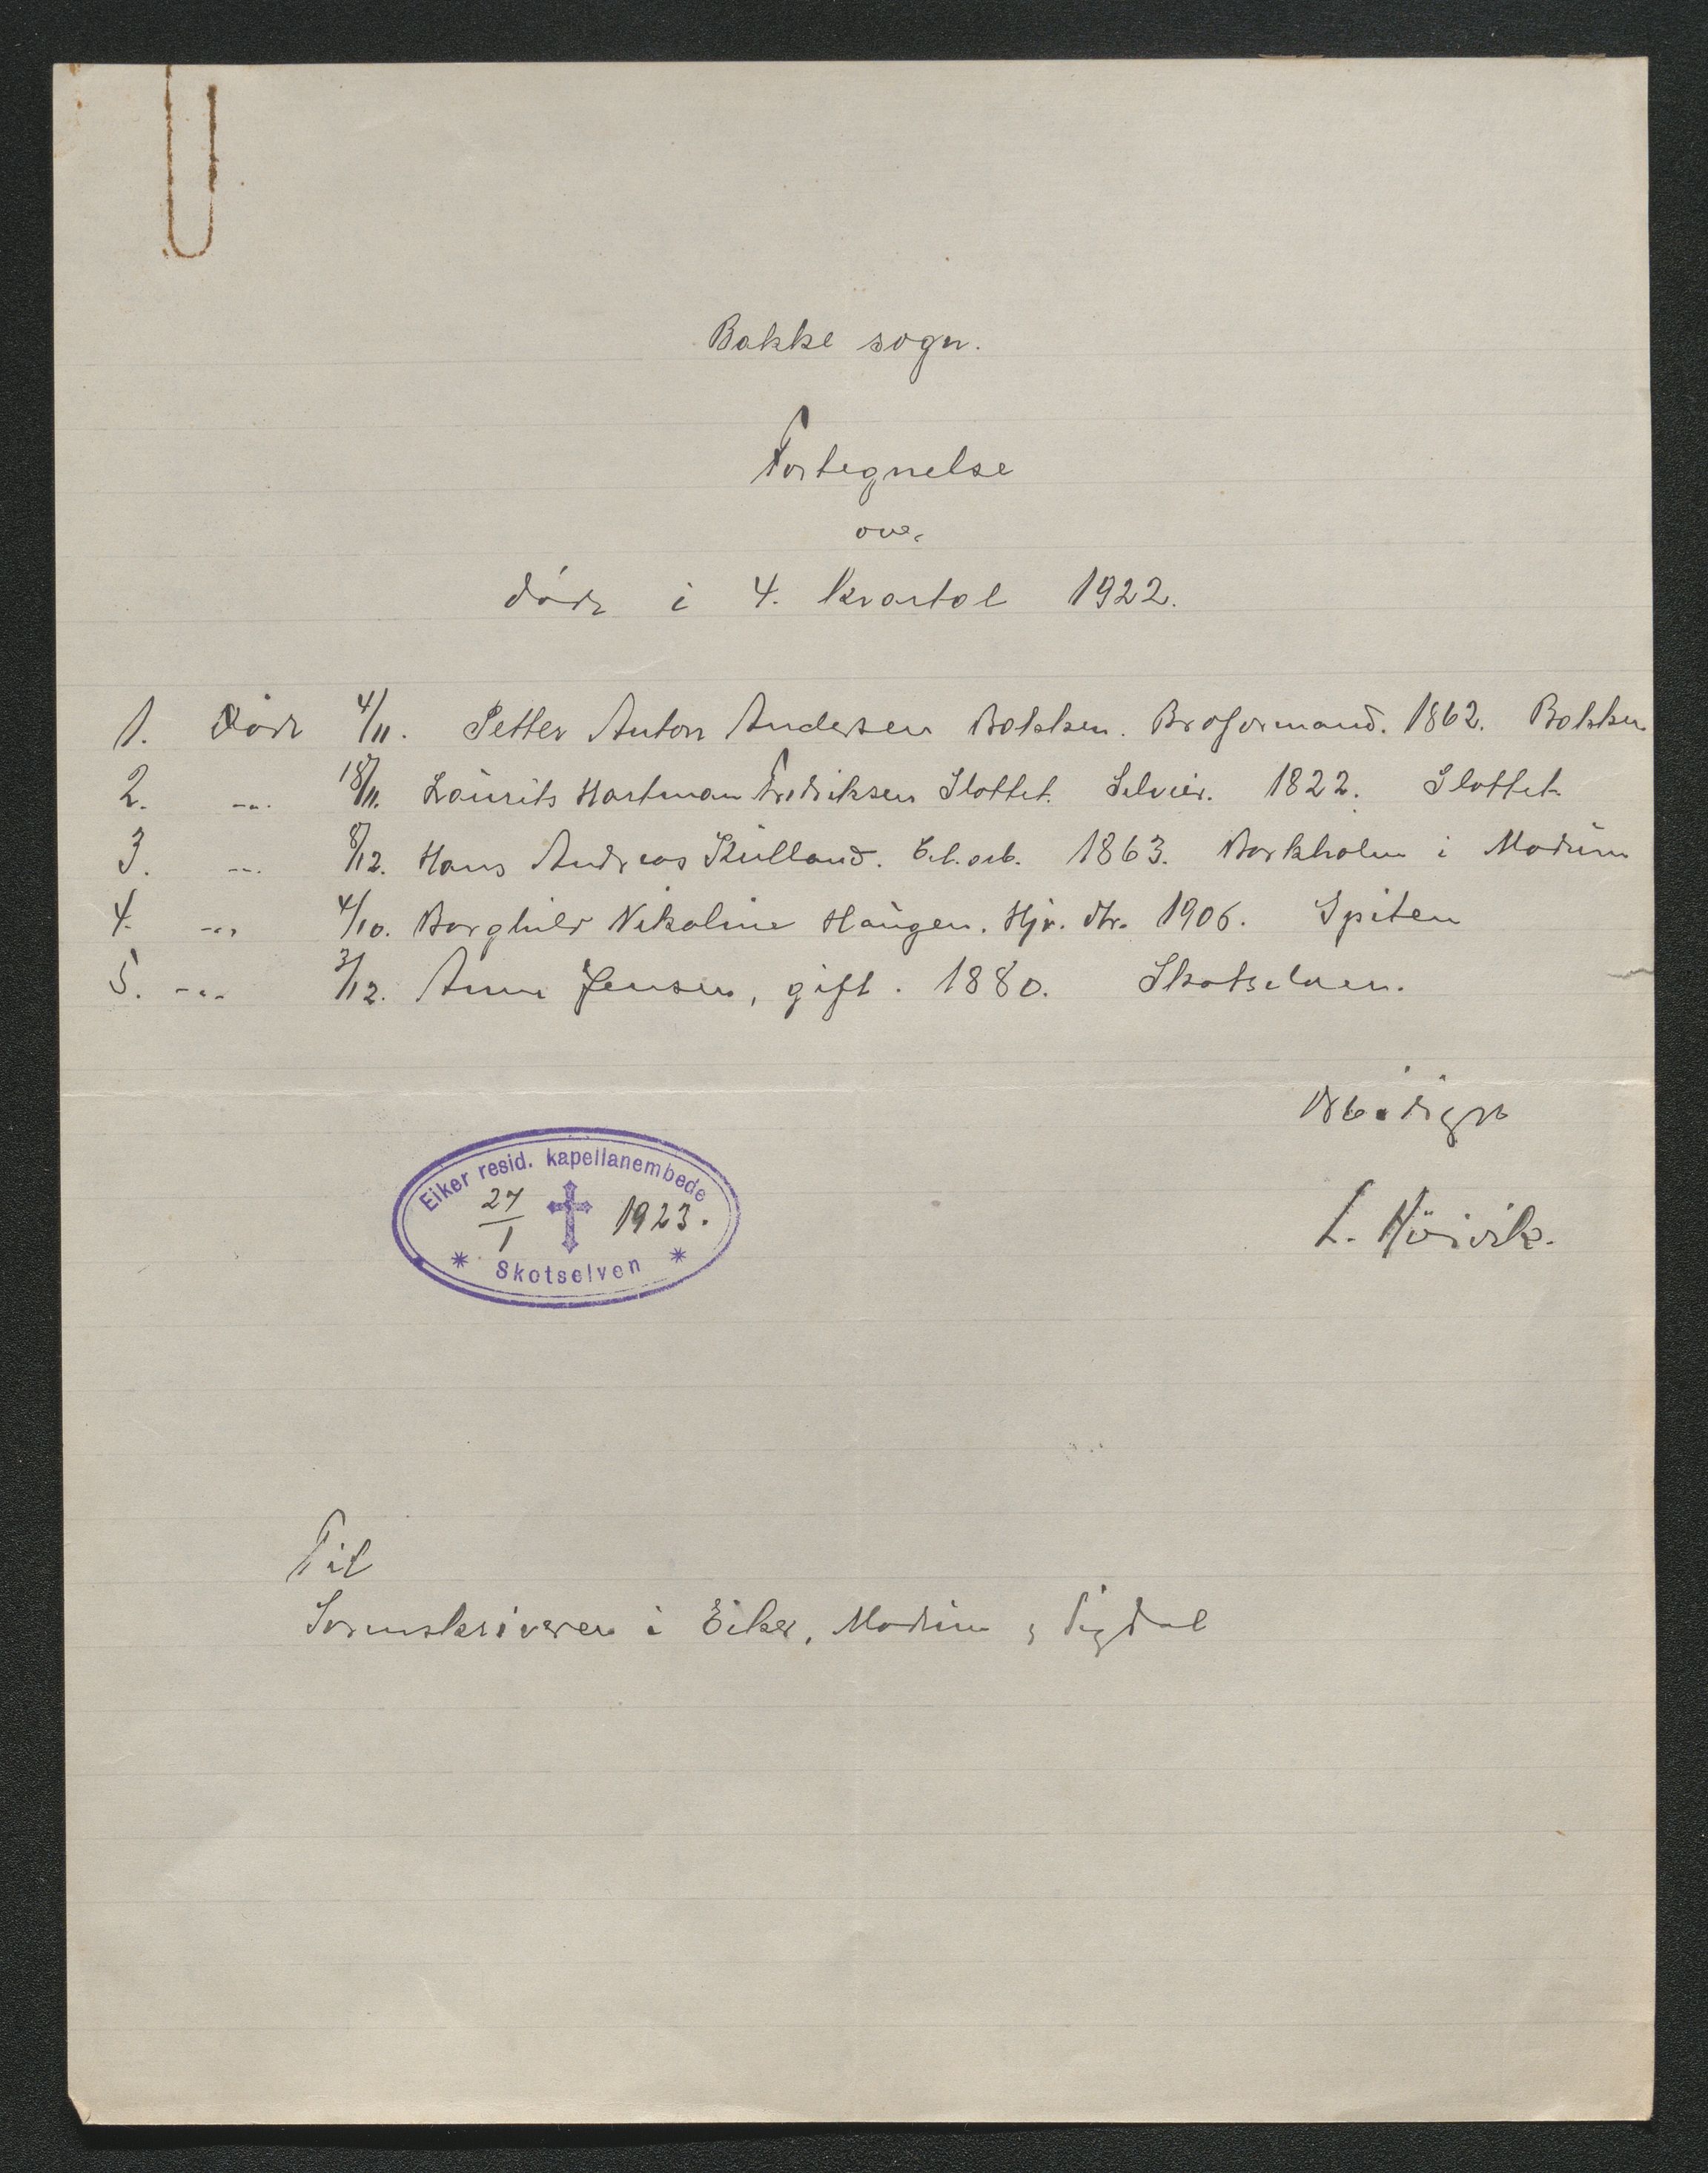 Bakke sogn.
Fortegnelse
over
døde i 4. kvartal 1922.
1. Død 4/11. Petter Anton Andersen Bakken. Broformand. 1862. Bakken
2. -"- 18/11. Laurits Hartman Fredriksen Slottet. Selveier. 1822. Slottet.
3. -"- 8/12. Hans Andreas Kulland. Erl. arb. 1863. Barkholm i Modum
4. -"- 4/10. Borghild Nikoline Haugen. Hjv. dtr. 1906. Spiten
5. -"- 3/12. Anna Jensen, gift. 1880. Skotselven.
Ærbødigst
L. Höivik.
Eiker resid. kapellanembede
27/1 1923.
* Skotselven *
Til
Sorenskriveren i Eiker, Modum & Sigdal